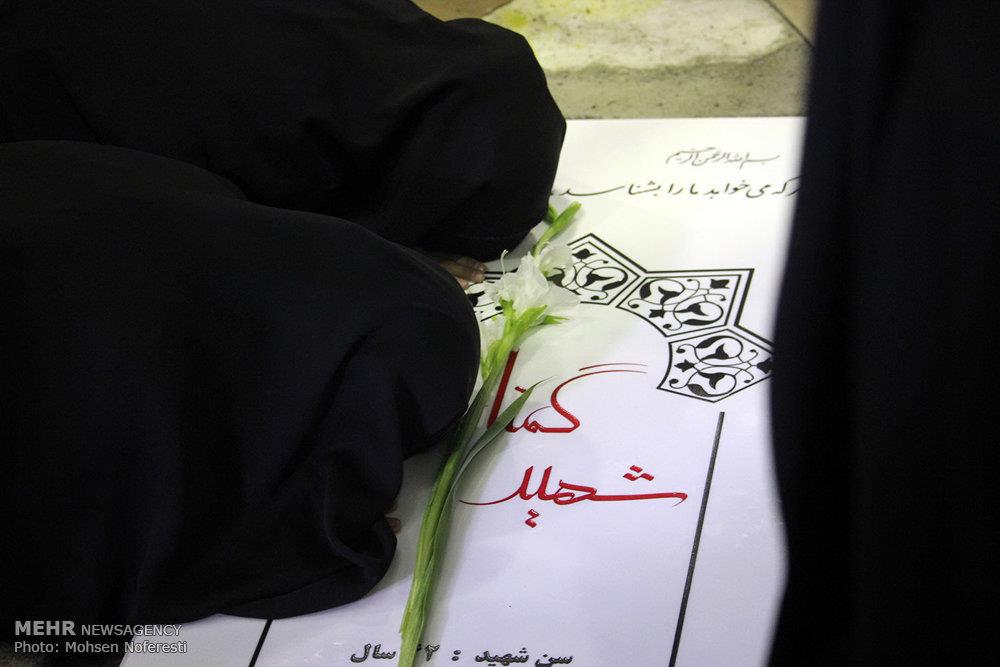 بسم الله الرحمن الرحیم
که می خواهد ما را بشناسد
گمنا
شهید
سن شهید : ۲۲ سال
MEHR NEWSAGENCY
Photo: Mohsen Noferesti